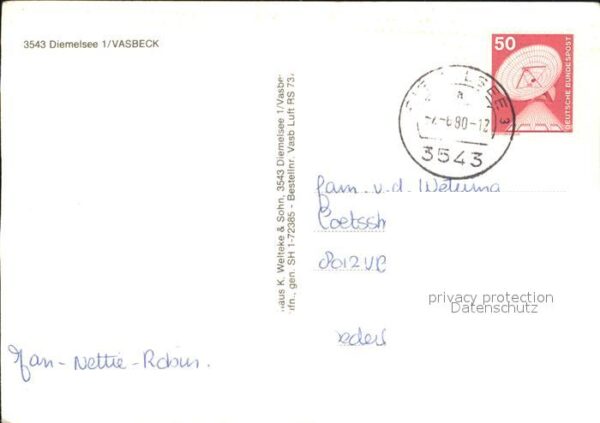 3543 Diemelsee 1/VASBECK
50
DEUTSCHE BUNDESPOST
3
80-12
3543
aus K. Welteke & Sohn, 3543 Diemelsee 1/Vasbe
ufn., gen. SH 1-72385 - Bestellnr. Vasb Luft RS 73
fam. v.d.
8012VC
privacy protection
Datenschutz
Jan - Nettie - Robin.